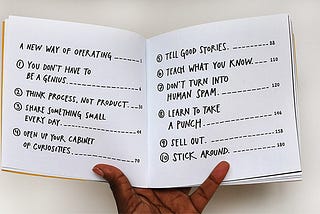 A NEW WAY OF OPERATING 1
① YOU DON'T HAVE TO
BE A GENIUS.
② THINK PROCESS, NOT PRODUCT.
③ SHARE SOMETHING SMALL
EVERY DAY.
④ OPEN UP YOUR CABINET
OF CURIOSITIES.
⑤ TELL GOOD STORIES.
⑥ TEACH WHAT YOU KNOW. 110
⑦ DON'T TURN INTO
HUMAN SPAM. 120
⑧ LEARN TO TAKE
A PUNCH. 146
⑨ SELL OUT. 158
⑩ STICK AROUND. 180